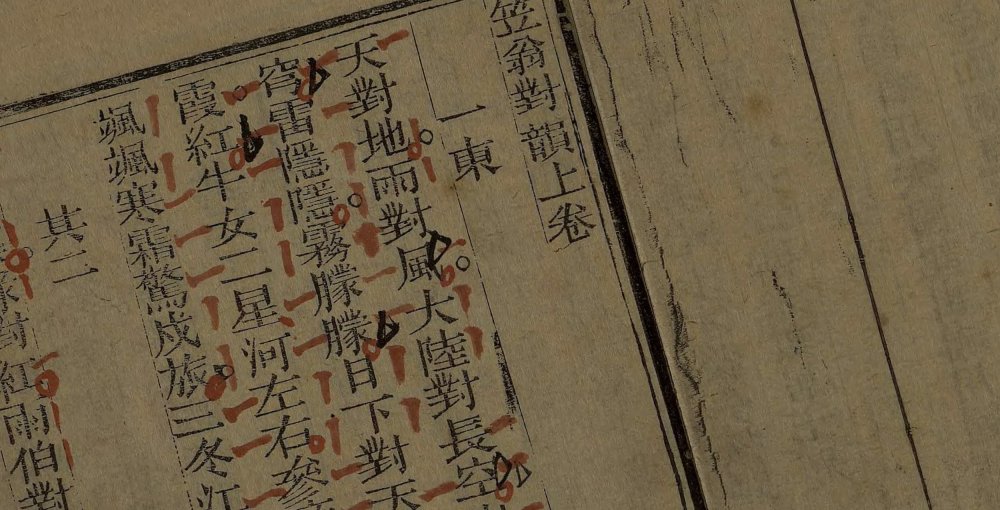 笠翁對韻上卷
一東
天對地雨對風大陸對長空
穹雷隱隱霧朦朦日下對天
霞紅牛女二星河左右參
颯颯寒霜驚戍旅三冬江
其二
對紅雨伯對